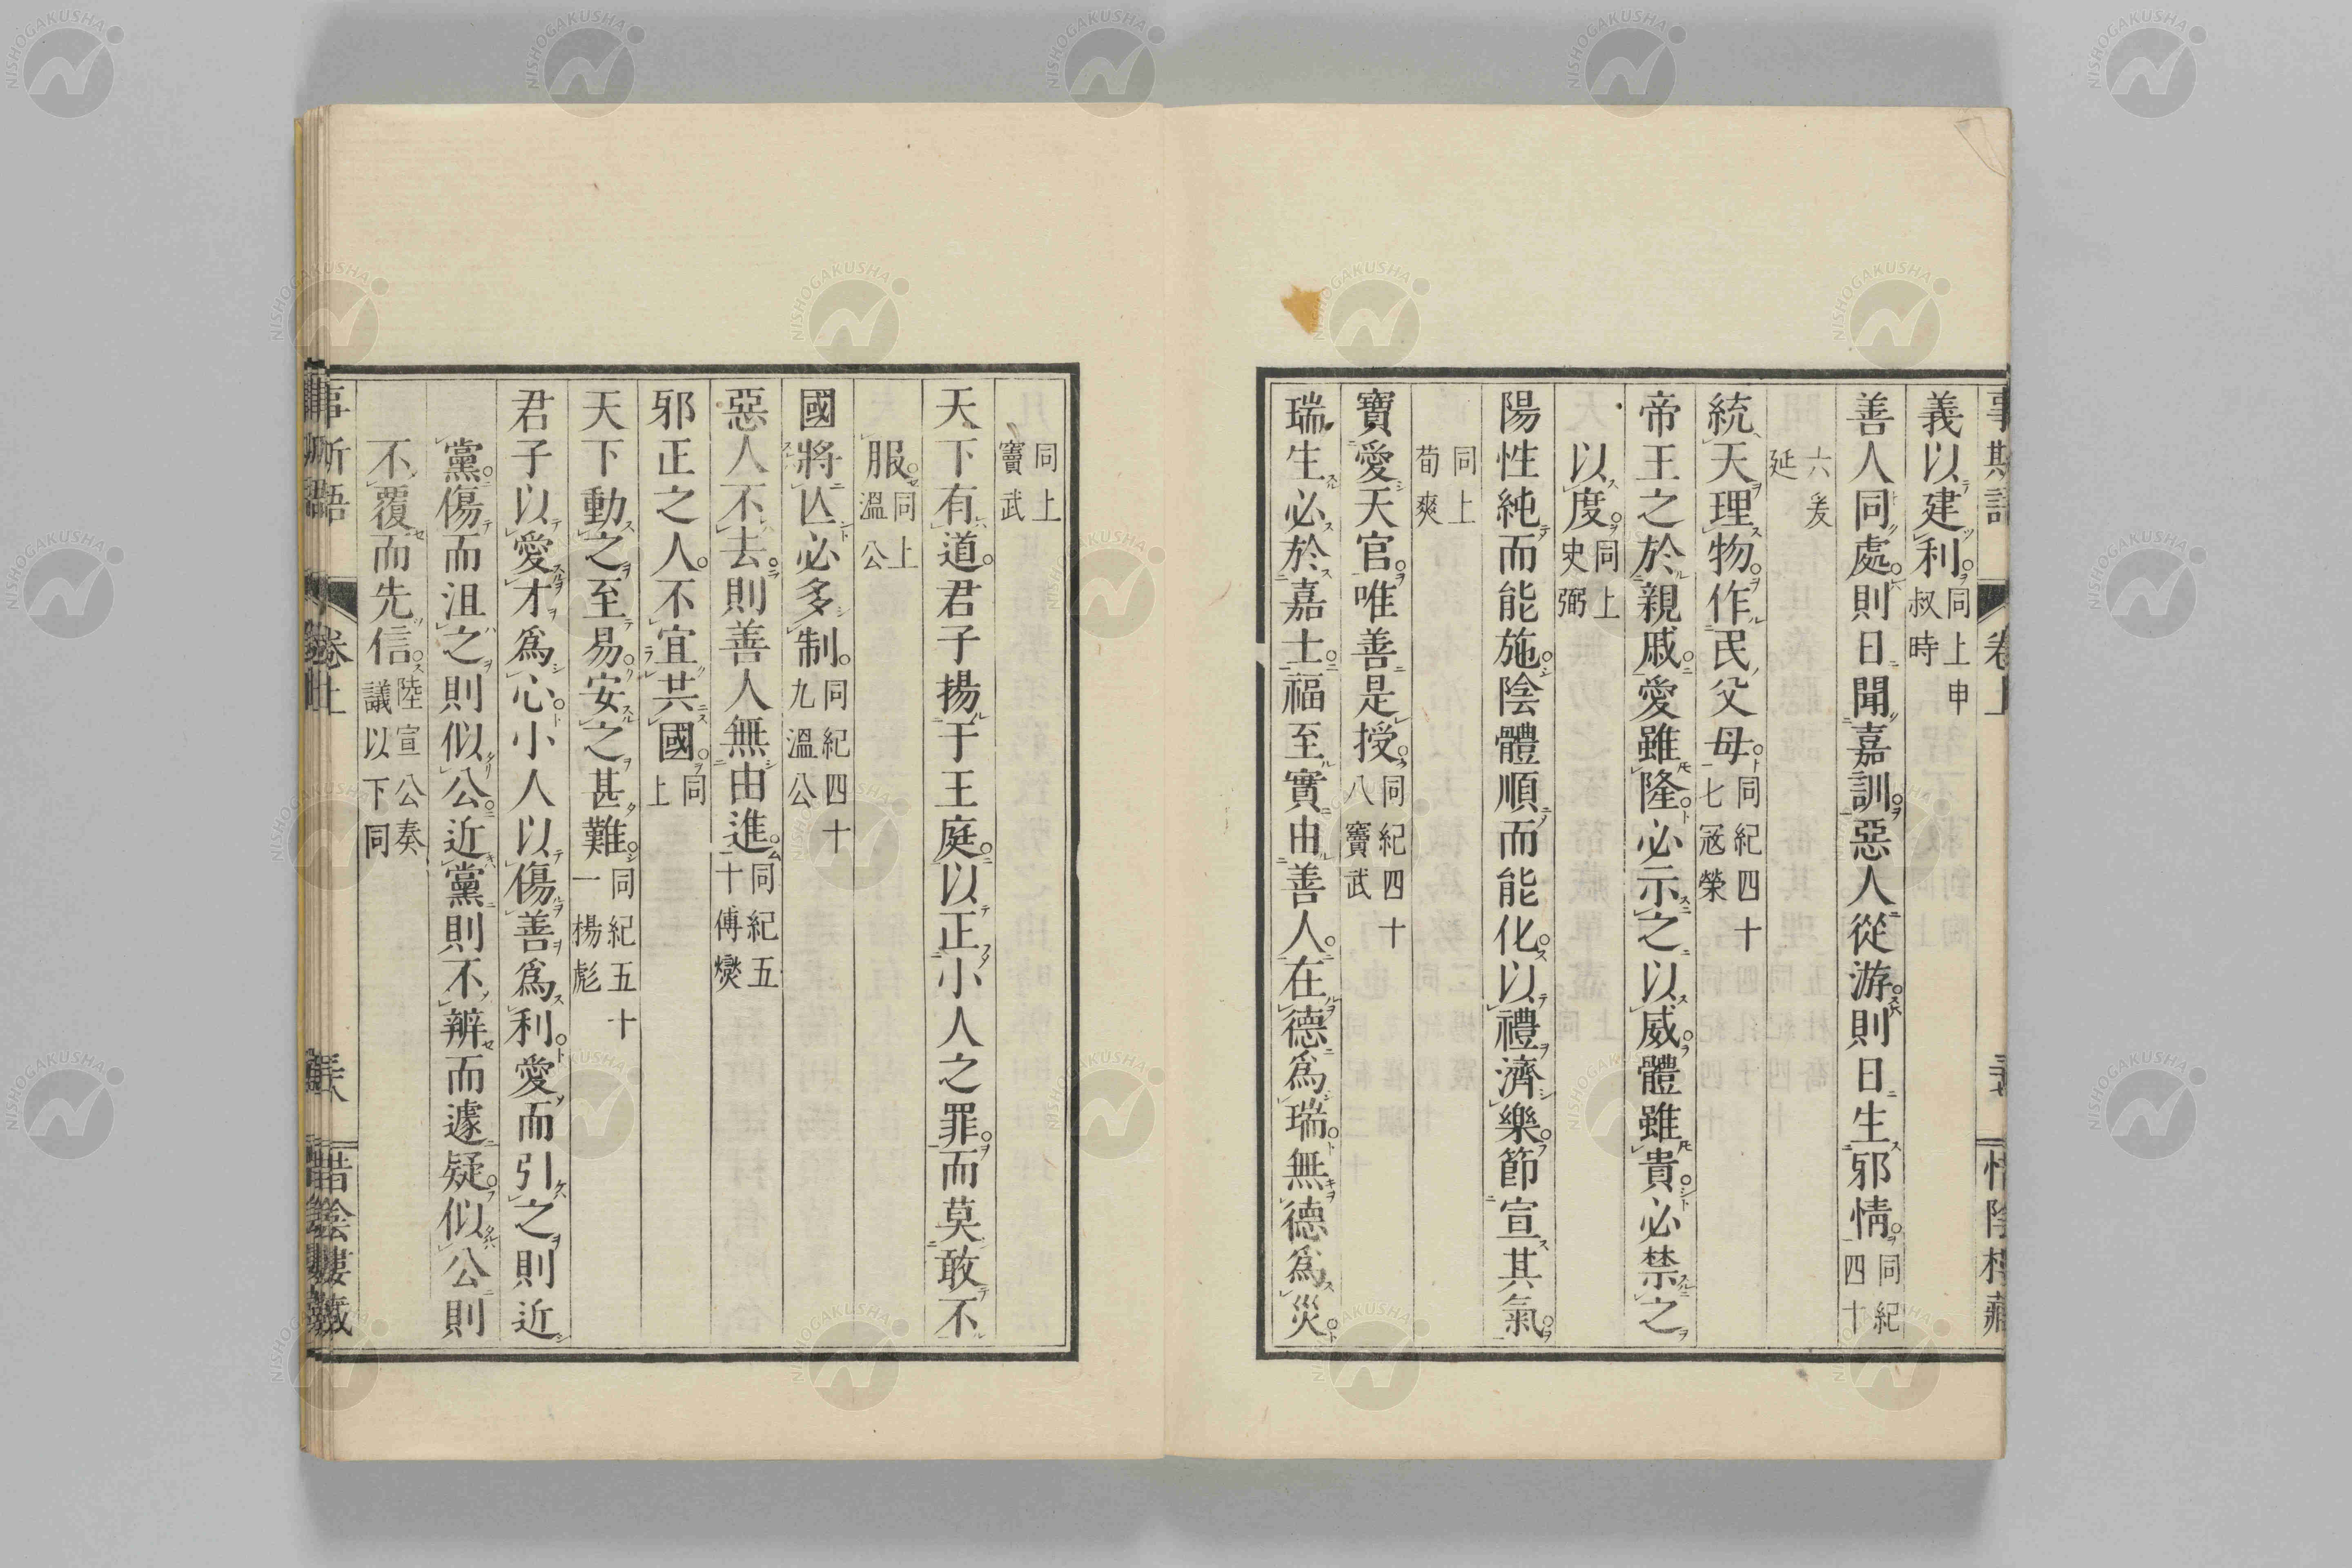 義以建利同上申叔時
善人同處則日聞嘉訓惡人從游則日生邪情同紀四十
六爰延
統天理物作民父母同紀四十七寇榮
帝王之於親戚愛雖隆必示之以威體雖貴必禁之
以度同上史弼
陽性純而能施陰體順而能化以禮濟樂節宣其氣
同上荀爽
寶愛天官唯善是授同紀四十八竇武
瑞生必於嘉士福至實由善人在德爲瑞無德爲災
同上竇武
天下有道君子揚于王庭以正小人之罪而莫敢不
服同上溫公
國將亾必多制同紀四十九溫公
惡人不去則善人無由進同紀五十傅燮
邪正之人不宜共國同上
天下動之至易安之甚難同紀五十一楊彪
君子以愛才爲心小人以傷善爲利愛而引之則近
黨傷而沮之則似公近黨則不辨而遽疑似公則
不覆而先信陸宣公奏議以下同
NISHOGAKUSHA